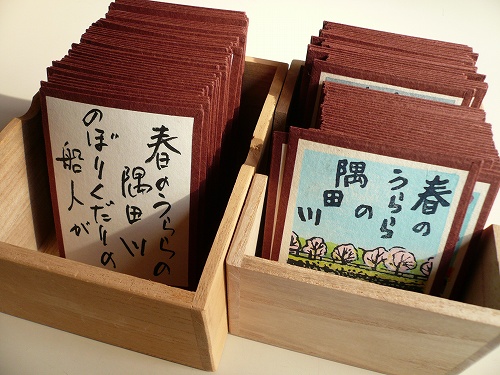 春のうららの
隅田川
のぼりくだりの
船人が
春の
うらら
の
隅田川